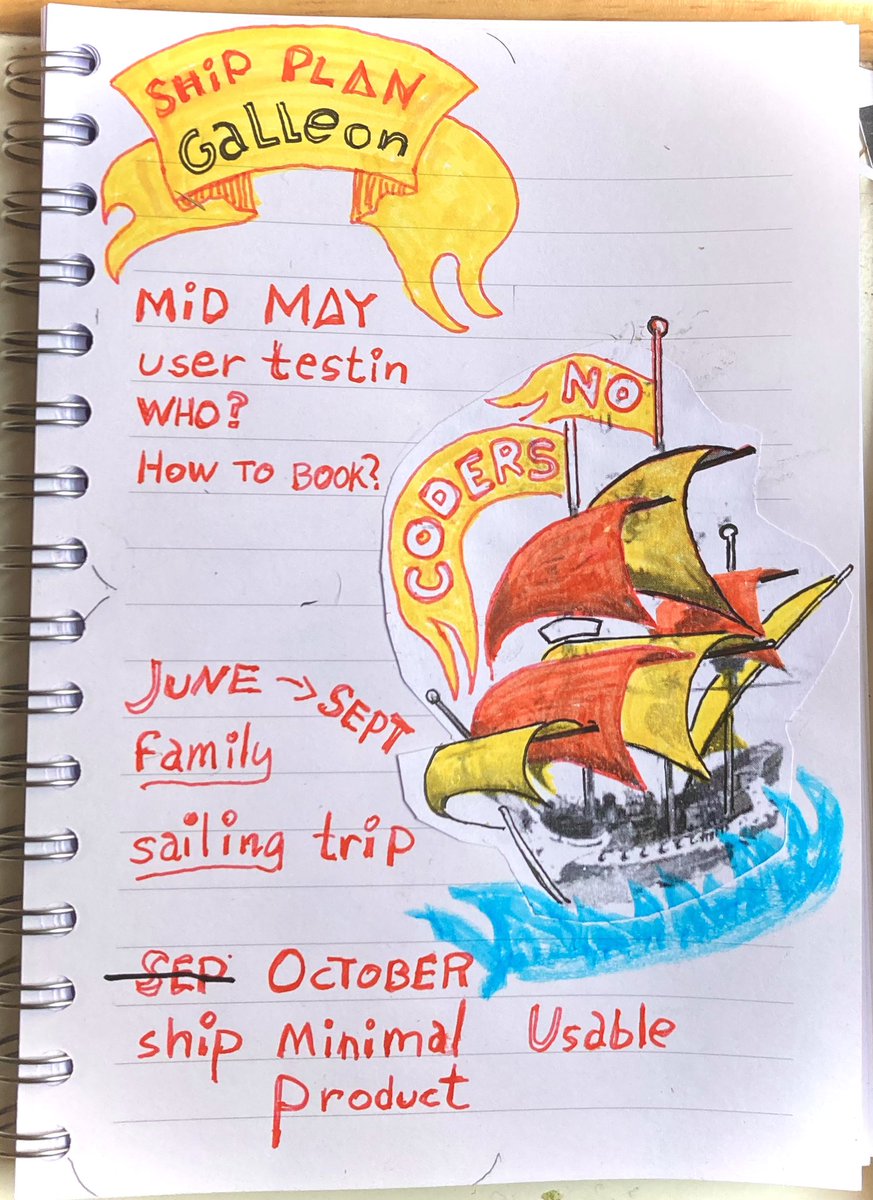 SHiP PLAN
GaLLeon
MiD MAY
user testin
WHO?
How TO BOOK?
NO
CODERS
JUNE → SEPT
family
sailing trip
SEP OCTOBER
ship Minimal Usable
product